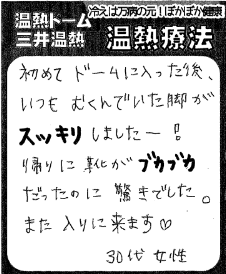 冷えは万病の元！ぽかぽか健康
温熱ドーム
三井温熱
温熱療法
初めてドームに入った後、
いつもむくんでいた脚が
スッキリしましたー！
帰りに靴がブカブカ
だったのに驚きでした。
また入りに来ます♡
30代 女性